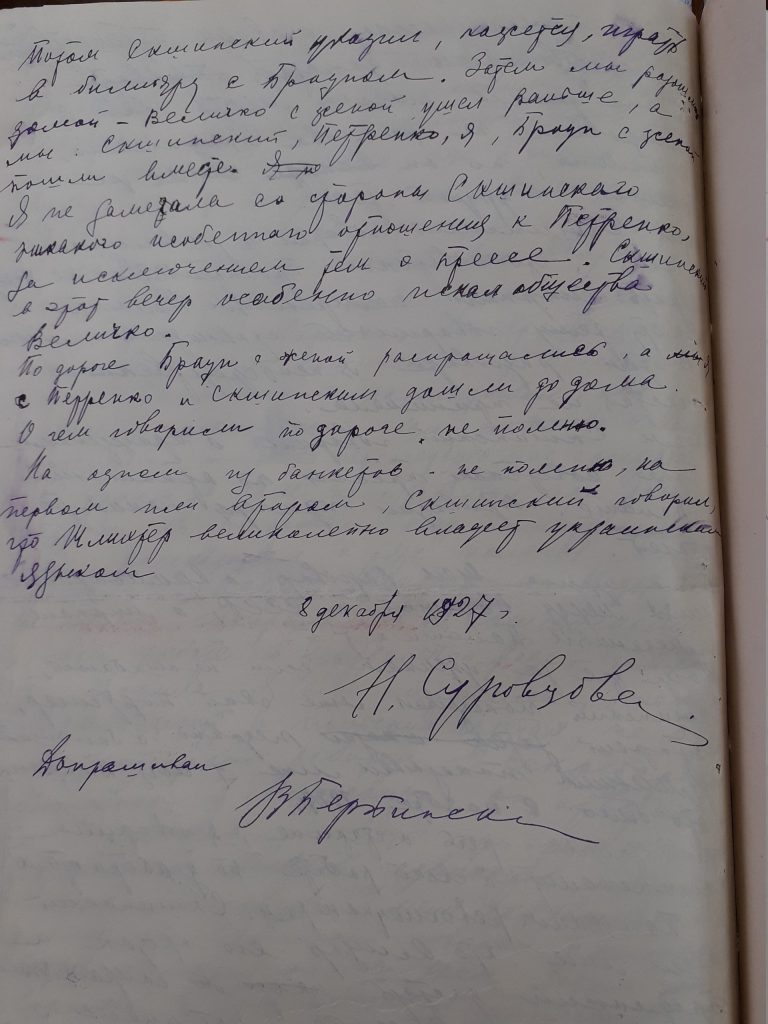 Потом Скшинский уходил, кажется, играть
в бильярд с Брауном. Затем мы разошлись
домой – Величко с женой ушел раньше, а
мы: Скшинский, Петренко, я, Браун с женой
пошли вместе. Я не
Я не замечала со стороны Скшинского
никакого особенного отношения к Петренко,
за исключением тем о прессе. Скшинский
в этот вечер особенно искал общества
Величко.
По дороге Браун с женой распрощались, а
с Петренко и Скшинским дошли до дома.
О чем говорили по дороге, не помню.
На одном из банкетов – не помню, на
первом или втором, Скшинский говорил,
что Шлихтер великолепно владеет украинским
языком
8 декабря 1927 г.
Н. Суровцова
Допрашивал